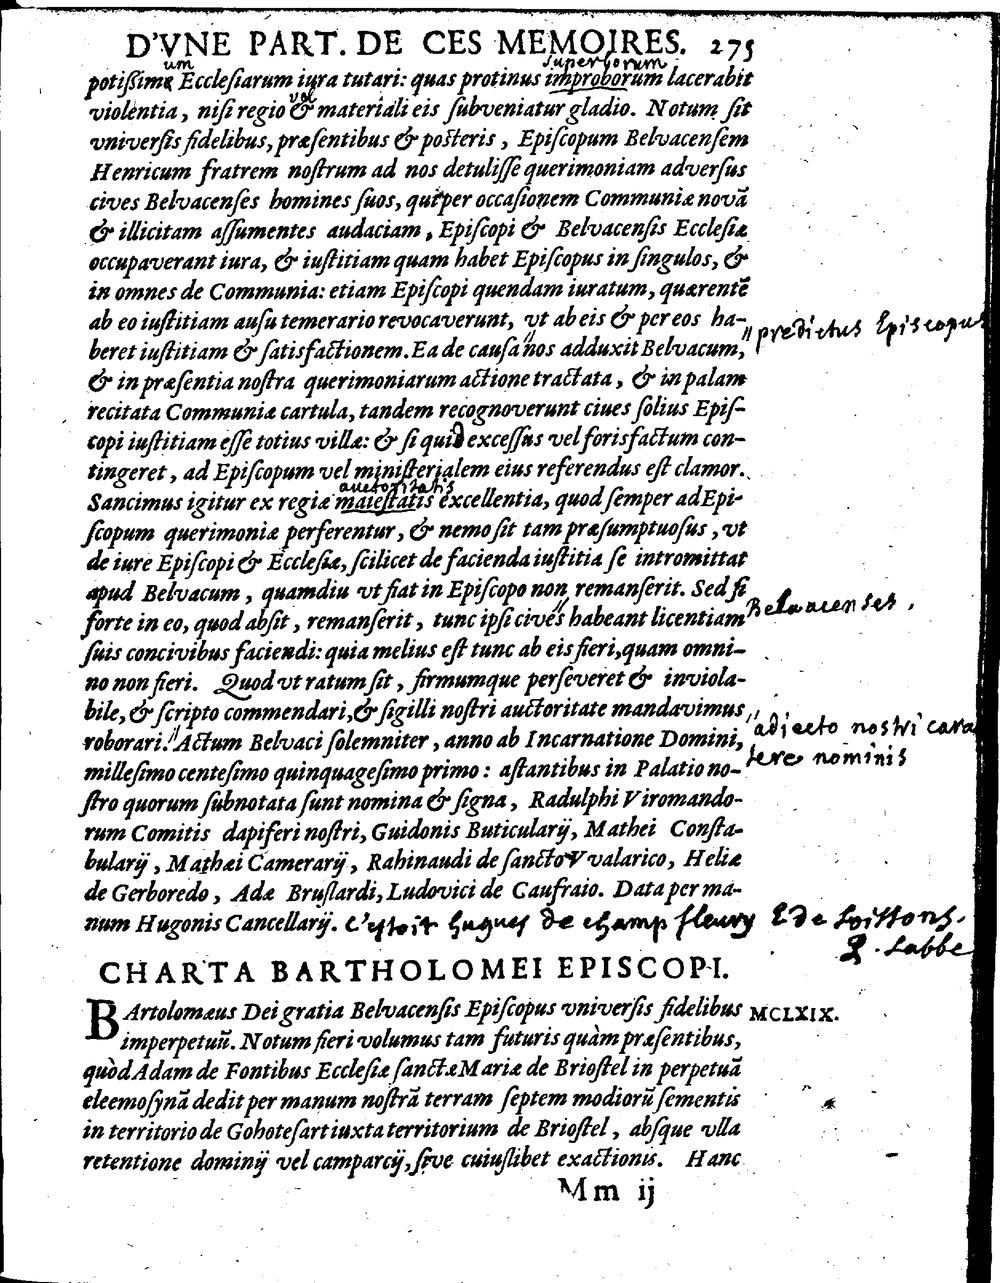 D'VNE PART. DE CES MEMOIRES. 275
um superborum
potißimè Ecclesiarum iura tutari: quas protinus improborum lacerabit
vel
violentia, nisi regio & materiali eis subveniatur gladio. Notum sit
vniversis fidelibus, præsentibus & posteris, Episcopum Belvacensem
Henricum fratrem nostrum ad nos detulisse querimoniam adversus
cives Belvacenses homines suos, qui per occasionem Communiæ novã
& illicitam assumentes audaciam, Episcopi & Belvacensis Ecclesiæ
occupaverant iura, & iustitiam quam habet Episcopus in singulos, &
in omnes de Communia: etiam Episcopi quendam iuratum, quærentē
ab eo iustitiam ausu temerario revocaverunt, vt ab eis & per eos ha-
" predictus Episcopus
beret iustitiam & satisfactionem. Ea de causa " nos adduxit Belvacum,
& in præsentia nostra querimoniarum actione tractata, & in palam
recitata Communiæ cartula, tandem recognoverunt ciues solius Epis-
copi iustitiam esse totius villæ: & si quid excessus vel forisfactum con-
tingeret, ad Episcopum vel ministerialem eius referendus est clamor.
auctoritatis
Sancimus igitur ex regiæ maiestatis excellentia, quod semper ad Epi-
scopum querimoniæ perferentur, & nemo sit tam præsumptuosus, vt
de iure Episcopi & Ecclesiæ, scilicet de facienda iustitia se intromittat
apud Belvacum, quamdiu vt fiat in Episcopo non remanserit. Sed si
forte in eo, quod absit, remanserit, tunc ipsi cives " habeant licentiam
Beluacenses.
suis concivibus faciendi: quia melius est tunc ab eis fieri, quam omni-
no non fieri. Quod vt ratum sit, firmumque perseveret & inviola-
bile, & scripto commendari, & sigilli nostri auctoritate mandavimus
" adjecto nostri cara
roborari. " Actum Belvaci solemniter, anno ab Incarnatione Domini,
tere nominis
millesimo centesimo quinquagesimo primo: astantibus in Palatio no-
stro quorum subnotata sunt nomina & signa, Radulphi Viromando-
rum Comitis dapiferi nostri, Guidonis Buticularij, Mathei Consta-
bularij, Mathæi Camerarij, Rahinaudi de sancto Vvalarico, Heliæ
de Gerboredo, Adæ Bruslardi, Ludovici de Caufraio. Data per ma-
num Hugonis Cancellarij. C'estoit hugues de champ fleury E de Soissons.
Labbe
CHARTA BARTHOLOMEI EPISCOPI.
BArtolomæus Dei gratia Belvacensis Episcopus vniversis fidelibus MCLXIX.
imperpetuũ. Notum fieri volumus tam futuris quàm præsentibus,
quòd Adam de Fontibus Ecclesiæ sanctæ Mariæ de Briostel in perpetuã
eleemosynã dedit per manum nostrã terram septem modiorũ sementis
in territorio de Gohotesart iuxta territorium de Briostel, absque vlla
retentione dominij vel camparcij, sive cuiuslibet exactionis. Hanc
Mm ij